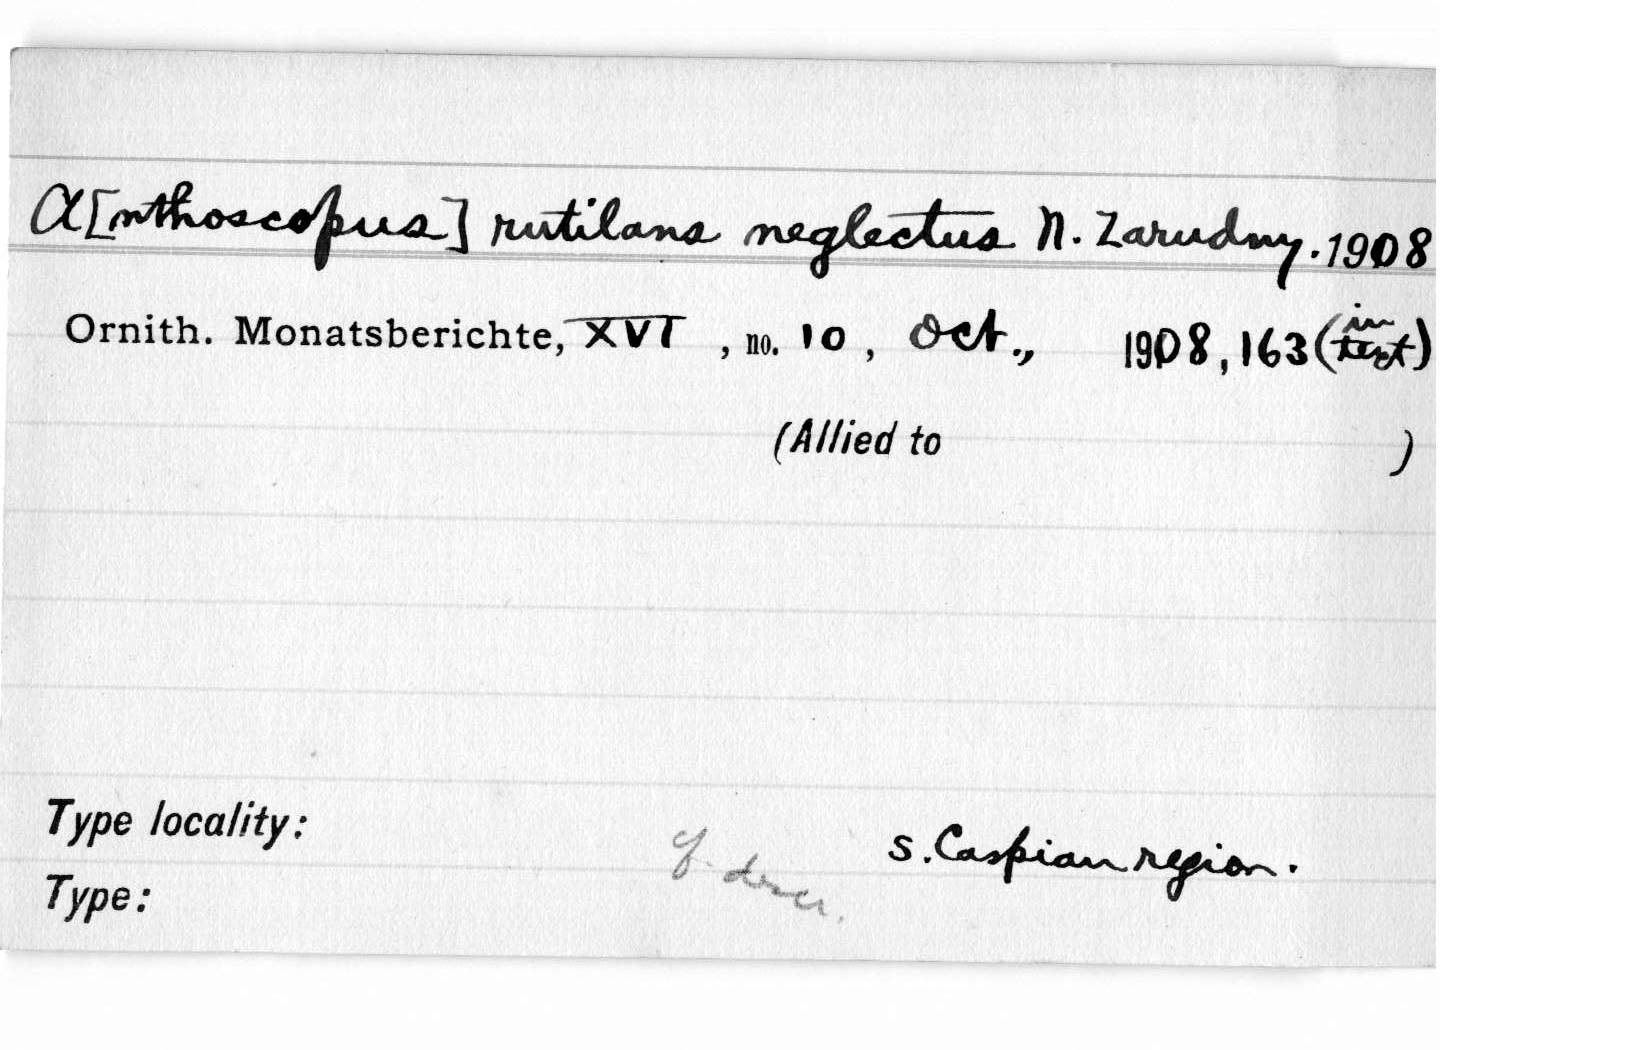 A[nthoscopus] rutilans neglectus N. Zarudny. 1908
Ornith. Monatsberichte, XVI , no. 10 , Oct., 1908, 163 (in text)
(Allied to )
Type locality: S. Caspian region.
descr.
Type: